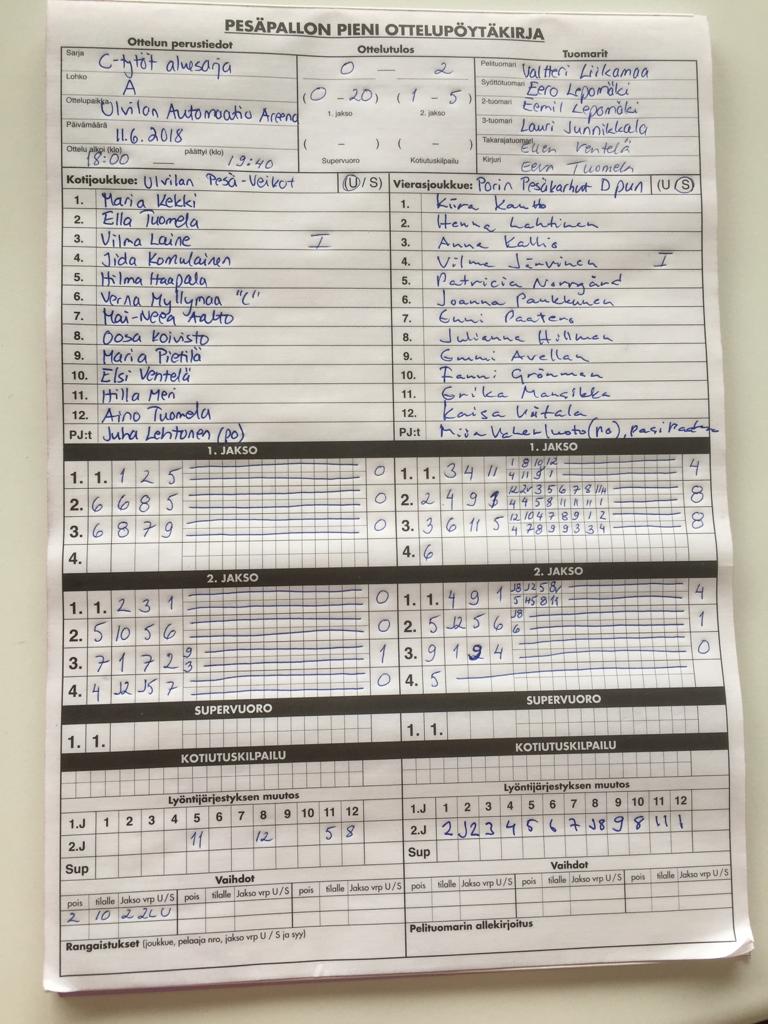 PESÄPALLON PIENI OTTELUPÖYTÄKIRJA
Ottelun perustiedot
Sarja C-tytöt aluesarja
Lohko A
Ottelupaikka Ulvilan Automaatio Areena
Päivämäärä 11.6.2018
Ottelu alkoi (klo) 18:00 — päättyi (klo) 19:40
Ottelutulos
0 — 2
(0 - 20) (1 - 5)
1. jakso 2. jakso
( - ) ( - )
Supervuoro Kotiutuskilpailu
Tuomarit
Pelituomari Valtteri Liikamaa
Syöttötuomari Eero Lepomäki
2-tuomari Eemil Lepomäki
3-tuomari Lauri Junnikkala
Takarajatuomari Ellen Ventelä
Kirjuri Eeva Tuomela
Kotijoukkue: Ulvilan Pesä-Veikot (U / S)
1. Maria Kekki
2. Ella Tuomela
3. Vilma Laine I
4. Iida Komulainen
5. Hilma Haapala
6. Verna Myllymaa "C"
7. Mai-Neea Aalto
8. Oosa Koivisto
9. Maria Pietilä
10. Elsi Ventelä
11. Hilla Meri
12. Aino Tuomela
PJ:t Juha Lehtonen (po)
Vierasjoukkue: Porin Pesäkarhut D pun (U S)
1. Kiira Kautto
2. Henna Lahtinen
3. Anna Kallio
4. Vilma Järvinen I
5. Patricia Norrgård
6. Joanna Pankkunen
7. Enni Paatero
8. Julianna Hillman
9. Emmi Avellan
10. Fanni Grönman
11. Erika Mansikka
12. Kaisa Viitala
PJ:t
1. JAKSO
1. 1. 1 2 5 0
2. 6 6 8 5 0
3. 6 8 7 9 0
4.
1. JAKSO
1. 1. 3 4 11 1 8 10 12 4
4 11 9 1
2. 2 4 9 1 8
3. 3 6 11 5 12 10 4 7 8 9 1 2 8
4 7 8 9 9 3 3 4
4. 6
2. JAKSO
1. 1. 2 3 1 0
2. 5 10 5 6 0
3. 7 1 7 2 9 1
3
4. 4 12 15 7 0
2. JAKSO
1. 1. 4 9 1 4
2. 5 12 5 6 18 1
6
3. 9 1 9 4 0
4. 5
SUPERVUORO
1. 1.
SUPERVUORO
1. 1.
KOTIUTUSKILPAILU
KOTIUTUSKILPAILU
Lyöntijärjestyksen muutos
1.J 1 2 3 4 5 6 7 8 9 10 11 12
2.J 11 12 5 8
Sup
Lyöntijärjestyksen muutos
1.J 1 2 3 4 5 6 7 8 9 10 11 12
2.J 2 12 3 4 5 6 7 18 9 8 11 1
Sup
Vaihdot
pois tilalle Jakso vrp U/S pois tilalle Jakso vrp U/S pois tilalle Jakso vrp U/S
2 10 2 2L U
Vaihdot
pois tilalle Jakso vrp U/S pois tilalle Jakso vrp U/S pois tilalle Jakso vrp U/S
Rangaistukset (joukkue, pelaaja nro, jakso vrp U / S ja syy)
Pelituomarin allekirjoitus